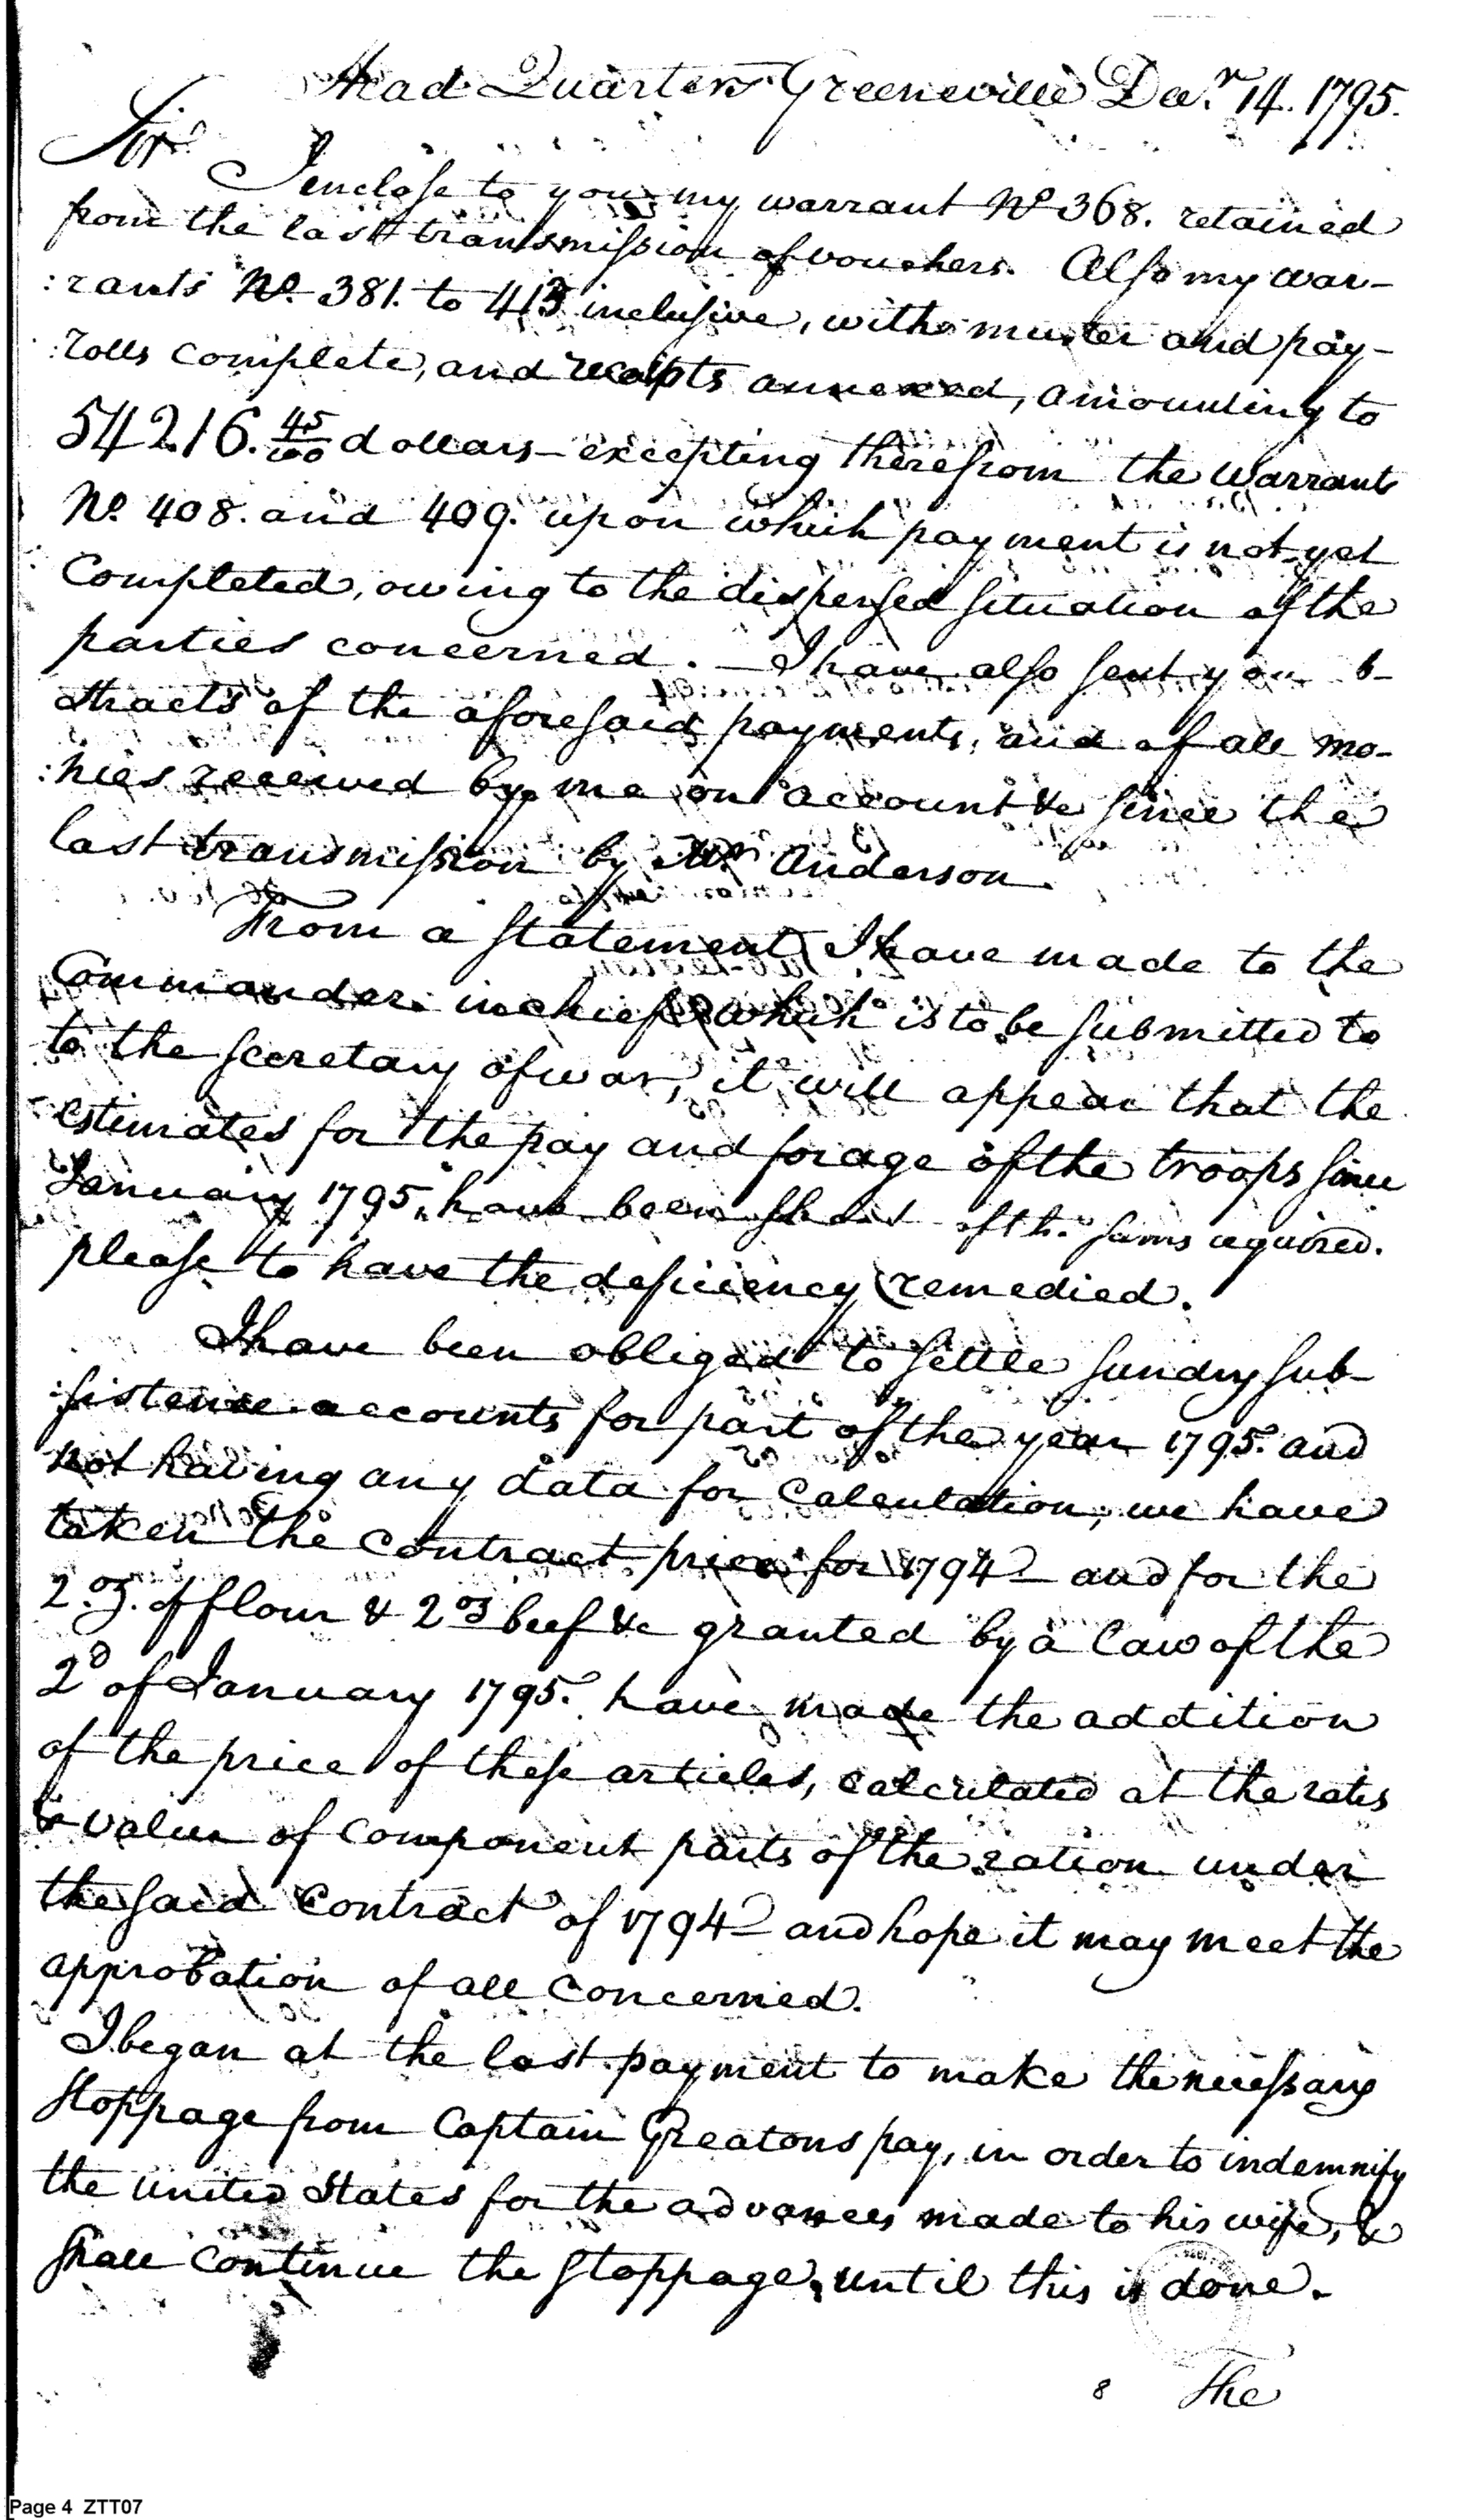 Head Quarters Greeneville Decr. 14. 1795.
Sir
I enclose to you my warrant No 368. retained
from the last transmission of vouchers. Also my war-
:rants No. 381. to 413 inclusive, with muster and pay-
:rolls complete, and receipts annexed, amounting to
54216. 45/100 dollars - excepting therefrom the warrants
No. 408. and 409. upon which payment is not yet
Completed, owing to the dispersed situation of the
parties concerned. — I have also sent you
stracts of the aforesaid payments, and of all mo-
:nies received by me on account &c since the
last transmission by Mr Anderson.
From a statement I have made to the
Commander in chief, which is to be submitted to
to the secretary of war, it will appear that the
estimates for the pay and forage of the troops since
January 1795, have been short of the sums required.
please to have the deficiency remedied.
I have been obliged to settle sundry sub-
:sistence accounts for part of the year 1795. and
not having any data for calculation, we have
taken the contract price for 1794 - and for the
2. oz. of flour & 2 oz beef &c granted by a law of the
2d of January 1795. have made the addition
of the price of these articles, calculated at the rates
& value of component parts of the ration under
the said contract of 1794 - and hope it may meet the
approbation of all concerned.
I began at the last payment to make the necessary
stoppage from Captain Greatons pay, in order to indemnify
the united States for the advances made to his wife, &
shall continue the stoppage, until this is done.
8 The
Page 4 ZTT07